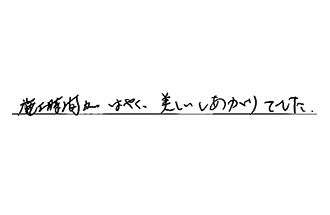 施工時間も はやく、美しいしあがりでした.